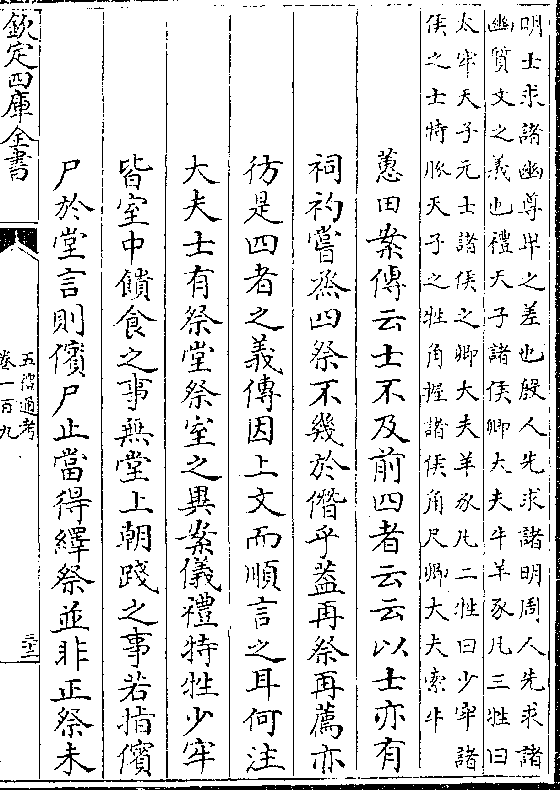 明士求諸幽尊卑之差也殷人先求諸明周人先求諸
幽質文之義也禮天子諸侯卿大夫牛羊豕凡三牲曰
太牢天子元士諸侯之卿大夫羊豕凡二牲曰少牢諸
侯之士特豚天子之牲角握諸侯角尺卿大夫索牛
蕙田案傳云士不及前四者云云以士亦有
祠礿嘗烝四祭不幾於僭乎蓋再祭再薦亦
彷是四者之義傳因上文而順言之耳何注
大夫士有祭堂祭室之異案儀禮特牲少牢
皆室中饋食之事無堂上朝踐之事若指儐
尸於堂言則儐尸止當得繹祭並非正祭未
欽定四庫全書
五禮通考
卷一百九
三十二